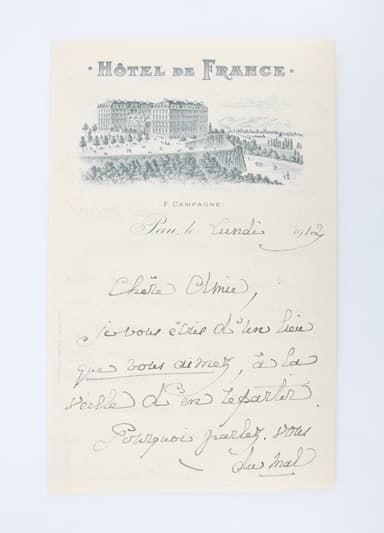 · HÔTEL DE FRANCE ·
F. CAMPAGNE
Pau, le Lundi 1912
Chère Amie,
je vous écris d'un lieu
que vous aimez, à la
veille d'en repartir.
Pourquoi parlez-vous
du mal